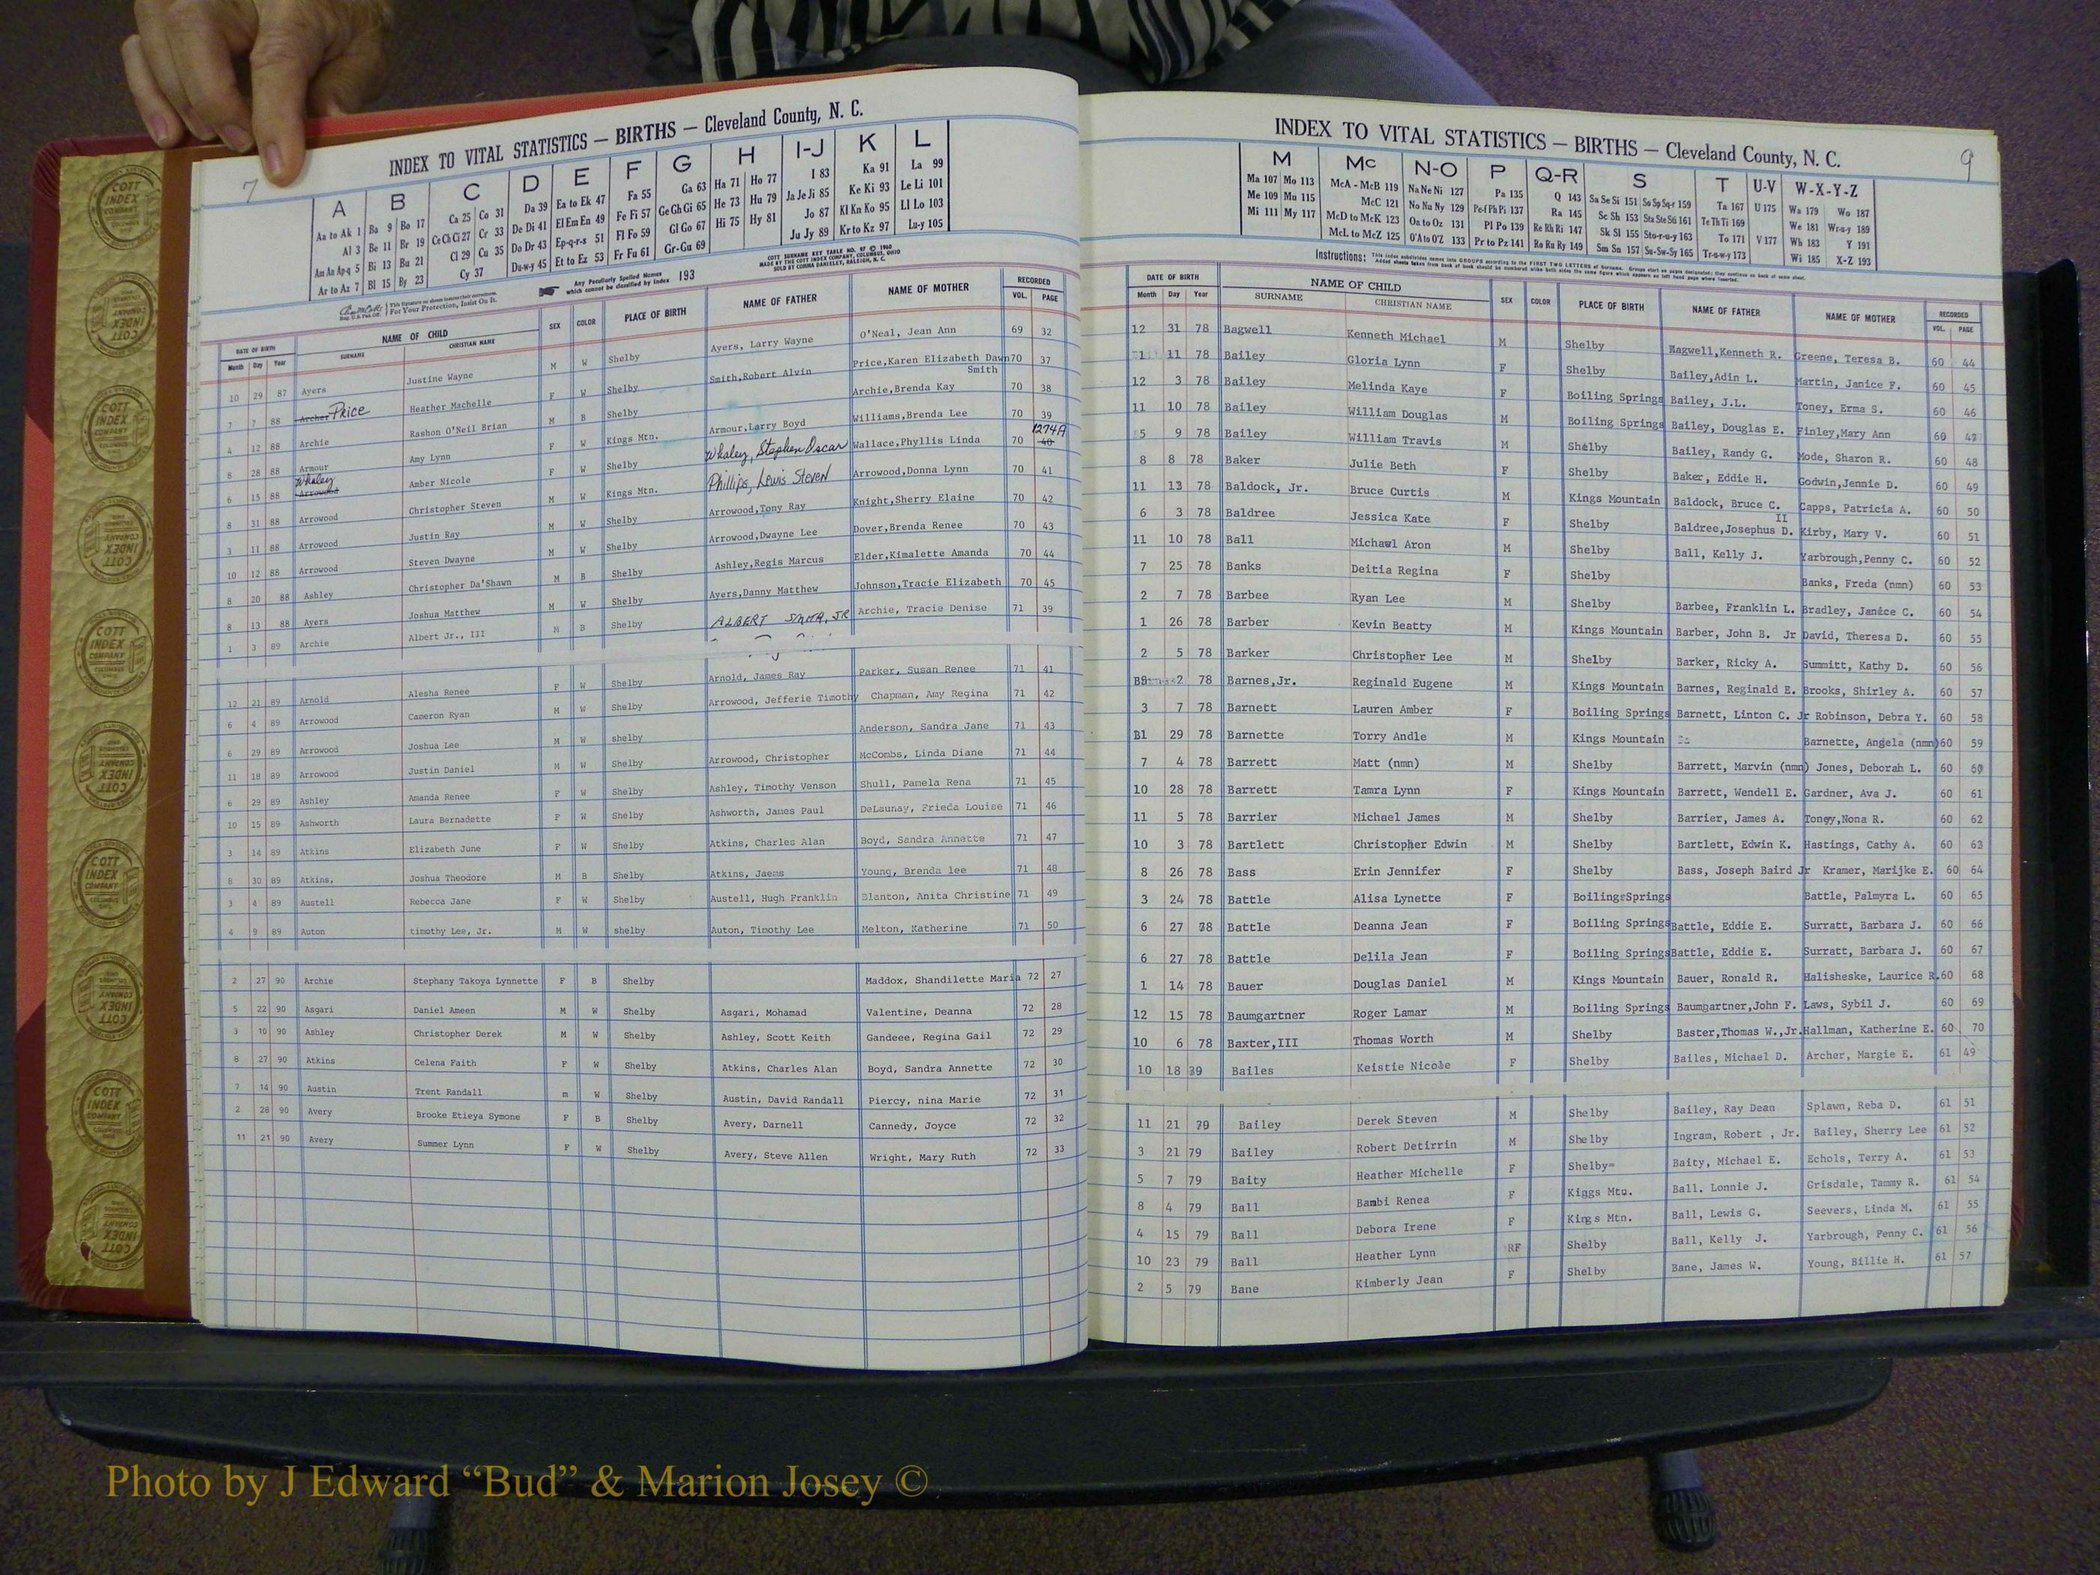 7
INDEX TO VITAL STATISTICS — BIRTHS — Cleveland County, N. C.
A B C D E F G H I-J K L
Aa to Ak 1 Ba 9 Bo 17 Ca 25 Co 31 Da 39 Ea to Ek 47 Fa 55 Ga 63 Ha 71 Ho 77 I 83 Ka 91 La 99
Al 3 Be 11 Br 19 Ce Ch Ci 27 Cr 33 De Di 41 El Em En 49 Fe Fi 57 Ge Gh Gi 65 He 73 Hu 79 Ja Je Ji 85 Ke Ki 93 Le Li 101
Am An Ap-q 5 Bi 13 Bu 21 Cl 29 Cu 35 Do Dr 43 Ep-q-r-s 51 Fl Fo 59 Gl Go 67 Hi 75 Hy 81 Jo 87 Kl Kn Ko 95 Ll Lo 103
Ar to Az 7 Bl 15 By 23 Cy 37 Du-w-y 45 Et to Ez 53 Fr Fu 61 Gr-Gu 69 Ju Jy 89 Kr to Kz 97 Lu-y 105
This signature on sheets insures their correctness. For Your Protection, Insist On It.
Any Peculiarly Spelled Names which cannot be classified by Index 193
COTT SURNAME KEY TABLE NO. 97 © 1960
MADE BY THE COTT INDEX COMPANY, COLUMBUS, OHIO
SOLD BY OWEN G. DUNN
DATE OF BIRTH NAME OF CHILD SEX COLOR PLACE OF BIRTH NAME OF FATHER NAME OF MOTHER RECORDED
Month Day Year SURNAME CHRISTIAN NAME VOL. PAGE
10 29 87 Ayers Justine Wayne M W Shelby Ayers, Larry Wayne O'Neal, Jean Ann 69 32
7 7 88 Archer Price Heather Machelle F W Shelby Smith,Robert Alvin Price,Karen Elizabeth Dawn Smith 70 37
4 12 88 Archie Rashon O'Neil Brian M B Shelby Archie,Brenda Kay 70 38
8 28 88 Armour Amy Lynn F W Kings Mtn. Armour,Larry Boyd Williams,Brenda Lee 70 39
6 15 88 Arrowood Whaley Amber Nicole F W Shelby Whaley, Stephen Oscar Wallace,Phyllis Linda 70 40 1274A
8 31 88 Arrowood Christopher Steven M W Kings Mtn. Phillips, Lewis Steven Arrowood,Donna Lynn 70 41
3 11 88 Arrowood Justin Ray M W Shelby Arrowood,Tony Ray Knight,Sherry Elaine 70 42
10 12 88 Arrowood Steven Dwayne M W Shelby Arrowood,Dwayne Lee Dover,Brenda Renee 70 43
8 20 88 Ashley Christopher Da'Shawn M B Shelby Ashley,Regis Marcus Elder,Kimalette Amanda 70 44
8 13 88 Ayers Joshua Matthew M W Shelby Ayers,Danny Matthew Johnson,Tracie Elizabeth 70 45
1 3 89 Archie Albert Jr., III M B Shelby ALBERT SMITH, JR Archie, Tracie Denise 71 39
12 21 89 Arnold Alesha Renee F W Shelby Arnold, James Ray Parker, Susan Renee 71 41
6 4 89 Arrowood Cameron Ryan M W Shelby Arrowood, Jefferie Timothy Chapman, Amy Regina 71 42
6 29 89 Arrowood Joshua Lee M W shelby Anderson, Sandra Jane 71 43
11 18 89 Arrowood Justin Daniel M W Shelby Arrowood, Christopher McCombs, Linda Diane 71 44
6 29 89 Ashley Amanda Renee F W Shelby Ashley, Timothy Venson Shull, Pamela Rena 71 45
10 15 89 Ashworth Laura Bernadette F W Shelby Ashworth, James Paul DeLaunay, Frieda Louise 71 46
3 14 89 Atkins Elizabeth June F W Shelby Atkins, Charles Alan Boyd, Sandra Annette 71 47
8 30 89 Atkins, Joshua Theodore M B Shelby Atkins, Jaems Young, Brenda lee 71 48
3 4 89 Austell Rebecca Jane F W Shelby Austell, Hugh Franklin Blanton, Anita Christine 71 49
4 9 89 Auton timothy Lee, Jr. M W shelby Auton, Timothy Lee Melton, Katherine 71 50
2 27 90 Archie Stephany Takoya Lynnette F B Shelby Maddox, Shandilette Maria 72 27
5 22 90 Asgari Daniel Ameen M W Shelby Asgari, Mohamad Valentine, Deanna 72 28
3 10 90 Ashley Christopher Derek M W Shelby Ashley, Scott Keith Gandeee, Regina Gail 72 29
8 27 90 Atkins Celena Faith F W Shelby Atkins, Charles Alan Boyd, Sandra Annette 72 30
7 14 90 Austin Trent Randall m W Shelby Austin, David Randall Piercy, nina Marie 72 31
2 28 90 Avery Brooke Etieya Symone F B Shelby Avery, Darnell Cannedy, Joyce 72 32
11 21 90 Avery Summer Lynn F W Shelby Avery, Steve Allen Wright, Mary Ruth 72 33
9
INDEX TO VITAL STATISTICS — BIRTHS — Cleveland County, N. C.
M Mc N-O P Q-R S T U-V W-X-Y-Z
Ma 107 Mo 113 McA - McB 119 Na Ne Ni 127 Pa 135 Q 143 Sa Se Si 151 So Sp Sq-r 159 Ta 167 U 175 Wa 179 Wo 187
Me 109 Mu 115 McC 121 No Nu Ny 129 Pe-f Ph Pi 137 Ra 145 Sc Sh 153 Sta Ste Sti 161 Te Th Ti 169 We 181 Wr-u-y 189
Mi 111 My 117 McD to McK 123 Oa to Oz 131 Pl Po 139 Re Rh Ri 147 Sk Sl 155 Sto-r-u-y 163 To 171 V 177 Wh 183 Y 191
McL to McZ 125 O'A to O'Z 133 Pr to Pz 141 Ro Ru Ry 149 Sm Sn 157 Su-Sw-Sy 165 Tr-u-w-y 173 Wi 185 X-Z 193
Instructions: This index subdivides names into GROUPS according to the FIRST TWO LETTERS of Surname. Groups start on pages designated; they continue on back of same sheet.
Added sheets taken from back of book should be numbered alike both sides the same figure which appears on left hand page where inserted.
DATE OF BIRTH NAME OF CHILD SEX COLOR PLACE OF BIRTH NAME OF FATHER NAME OF MOTHER RECORDED
Month Day Year SURNAME CHRISTIAN NAME VOL. PAGE
12 31 78 Bagwell Kenneth Michael M Shelby Bagwell,Kenneth R. Greene, Teresa B. 60 44
11 78 Bailey Gloria Lynn F Shelby Bailey,Adin L. Martin, Janice F. 60 45
12 3 78 Bailey Melinda Kaye F Boiling Springs Bailey, J.L. Toney, Erma S. 60 46
11 10 78 Bailey William Douglas M Boiling Springs Bailey, Douglas E. Finley,Mary Ann 60 47
5 9 78 Bailey William Travis M Shelby Bailey, Randy G. Mode, Sharon R. 60 48
8 8 78 Baker Julie Beth F Shelby Baker, Eddie H. Godwin,Jennie D. 60 49
11 13 78 Baldock, Jr. Bruce Curtis M Kings Mountain Baldock, Bruce C. Capps, Patricia A. 60 50
6 3 78 Baldree Jessica Kate F Shelby Baldree,Josephus D. II Kirby, Mary V. 60 51
11 10 78 Ball Michawl Aron M Shelby Ball, Kelly J. Yarbrough,Penny C. 60 52
7 25 78 Banks Deitia Regina F Shelby Banks, Freda (nmn) 60 53
2 7 78 Barbee Ryan Lee M Shelby Barbee, Franklin L. Bradley, Janice C. 60 54
1 26 78 Barber Kevin Beatty M Kings Mountain Barber, John B. Jr David, Theresa D. 60 55
2 5 78 Barker Christopher Lee M Shelby Barker, Ricky A. Summitt, Kathy D. 60 56
2 78 Barnes,Jr. Reginald Eugene M Kings Mountain Barnes, Reginald E. Brooks, Shirley A. 60 57
3 7 78 Barnett Lauren Amber F Boiling Springs Barnett, Linton C. Jr Robinson, Debra Y. 60 58
29 78 Barnette Torry Andle M Kings Mountain Barnette, Angela (nmn) 60 59
7 4 78 Barrett Matt (nmn) M Shelby Barrett, Marvin (nmn) Jones, Deborah L. 60 60
10 28 78 Barrett Tamra Lynn F Kings Mountain Barrett, Wendell E. Gardner, Ava J. 60 61
11 5 78 Barrier Michael James M Shelby Barrier, James A. Toney,Nona R. 60 62
10 3 78 Bartlett Christopher Edwin M Shelby Bartlett, Edwin K. Hastings, Cathy A. 60 63
8 26 78 Bass Erin Jennifer F Shelby Bass, Joseph Baird Jr Kramer, Marijke E. 60 64
3 24 78 Battle Alisa Lynette F Boiling Springs Battle, Palmyra L. 60 65
6 27 78 Battle Deanna Jean F Boiling Springs Battle, Eddie E. Surratt, Barbara J. 60 66
6 27 78 Battle Delila Jean F Boiling Springs Battle, Eddie E. Surratt, Barbara J. 60 67
1 14 78 Bauer Douglas Daniel M Kings Mountain Bauer, Ronald R. Halisheske, Laurice R. 60 68
12 15 78 Baumgartner Roger Lamar M Boiling Springs Baumgartner,John F. Laws, Sybil J. 60 69
10 6 78 Baxter,III Thomas Worth M Shelby Baster,Thomas W.,Jr. Hallman, Katherine E. 60 70
10 18 79 Bailes Keistie Nicole F Shelby Bailes, Michael D. Archer, Margie E. 61 49
11 21 79 Bailey Derek Steven M Shelby Bailey, Ray Dean Splawn, Reba D. 61 51
3 21 79 Bailey Robert Detirrin M Shelby Ingram, Robert , Jr. Bailey, Sherry Lee 61 52
5 7 79 Baity Heather Michelle F Shelby Baity, Michael E. Echols, Terry A. 61 53
8 4 79 Ball Bambi Renea F Kiggs Mtn. Ball. Lonnie J. Grisdale, Tammy R. 61 54
4 15 79 Ball Debora Irene F Kings Mtn. Ball, Lewis G. Seevers, Linda M. 61 55
10 23 79 Ball Heather Lynn F Shelby Ball, Kelly J. Yarbrough, Penny C. 61 56
2 5 79 Bane Kimberly Jean F Shelby Bane, James W. Young, Billie H. 61 57
COTT INDEX COMPANY COLUMBUS OHIO
Photo by J Edward “Bud” & Marion Josey ©